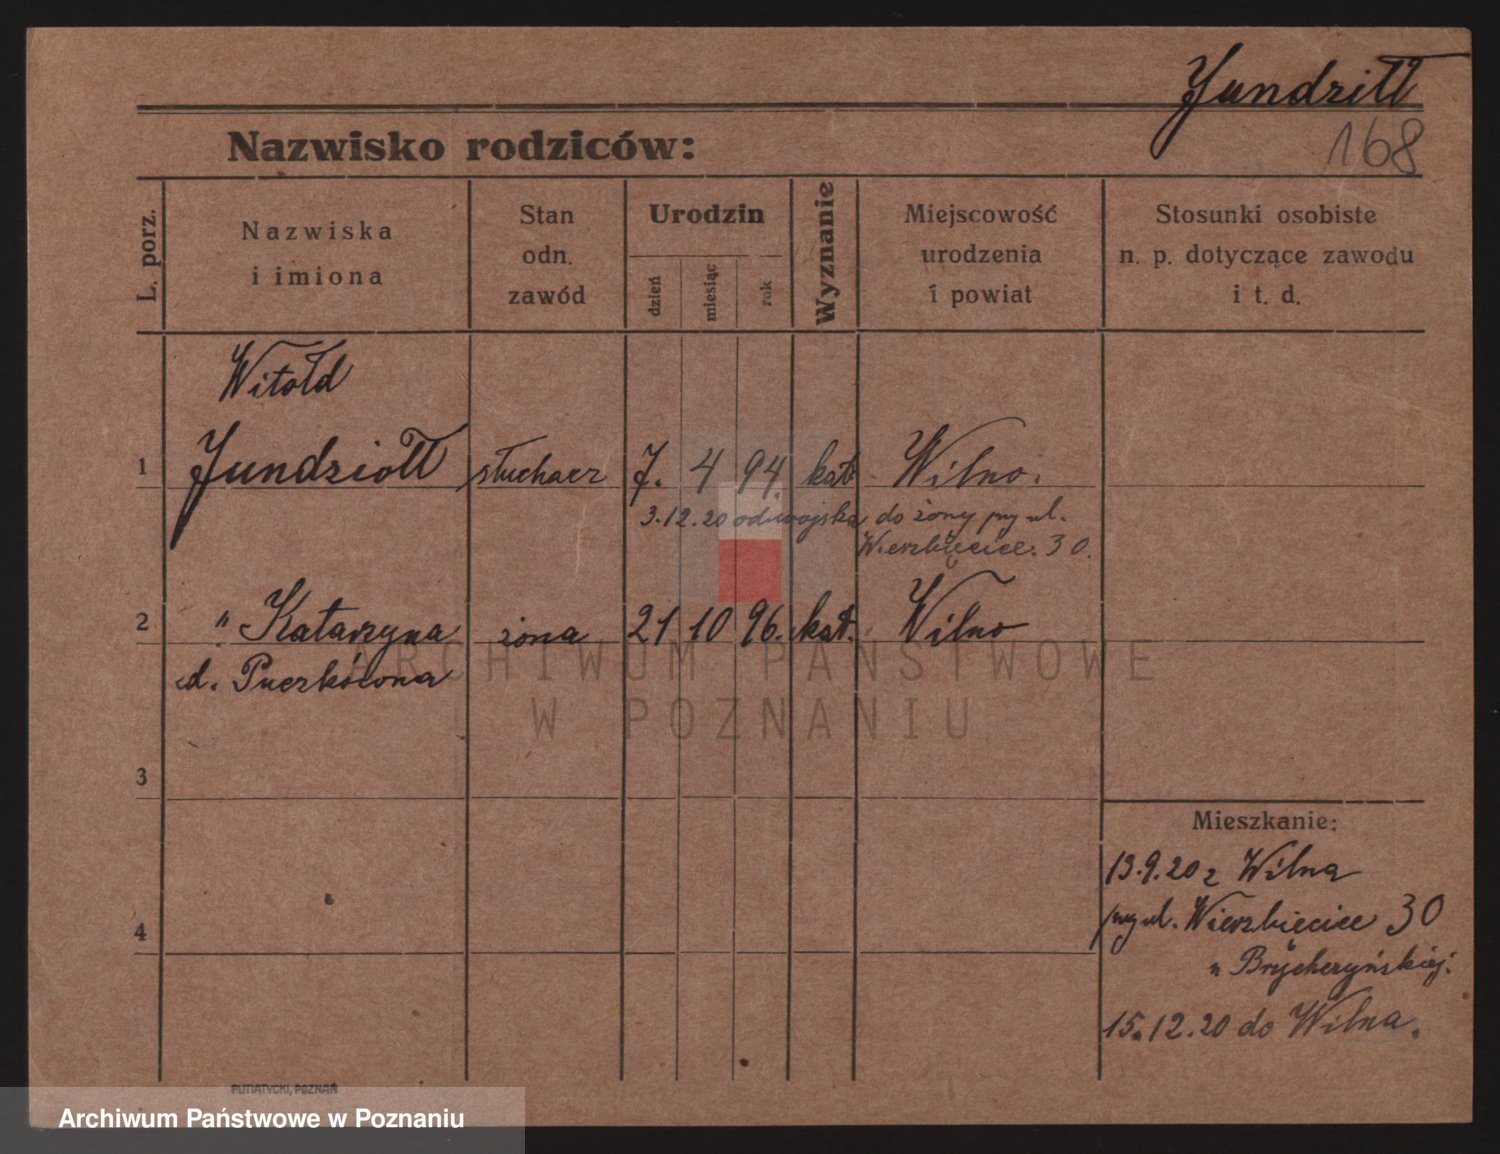 Jundziłł
168
Nazwisko rodziców:
L. porz.
Nazwiska
i imiona
Stan
odn.
zawód
Urodzin
dzień
miesiąc
rok
Wyznanie
Miejscowość
urodzenia
i powiat
Stosunki osobiste
n. p. dotyczące zawodu
i t. d.
Witołd
1 Jundziołł słuchacz 7. 4 94. kat Wilno.
3.12.20 od wojska do żony przy ul.
Wierzbięcice. 30.
2 " Katarzyna żona 21 10 96. kat. Wilno
d.
3
Mieszkanie:
13.9.20 z Wilna
przy ul. Wierzbięcice 30
u Brycherzyńskiej.
15.12.20 do Wilna.
4
PUTIATYCKI, POZNAŃ
ARCHIWUM PAŃSTWOWE
W POZNANIU
Archiwum Państwowe w Poznaniu